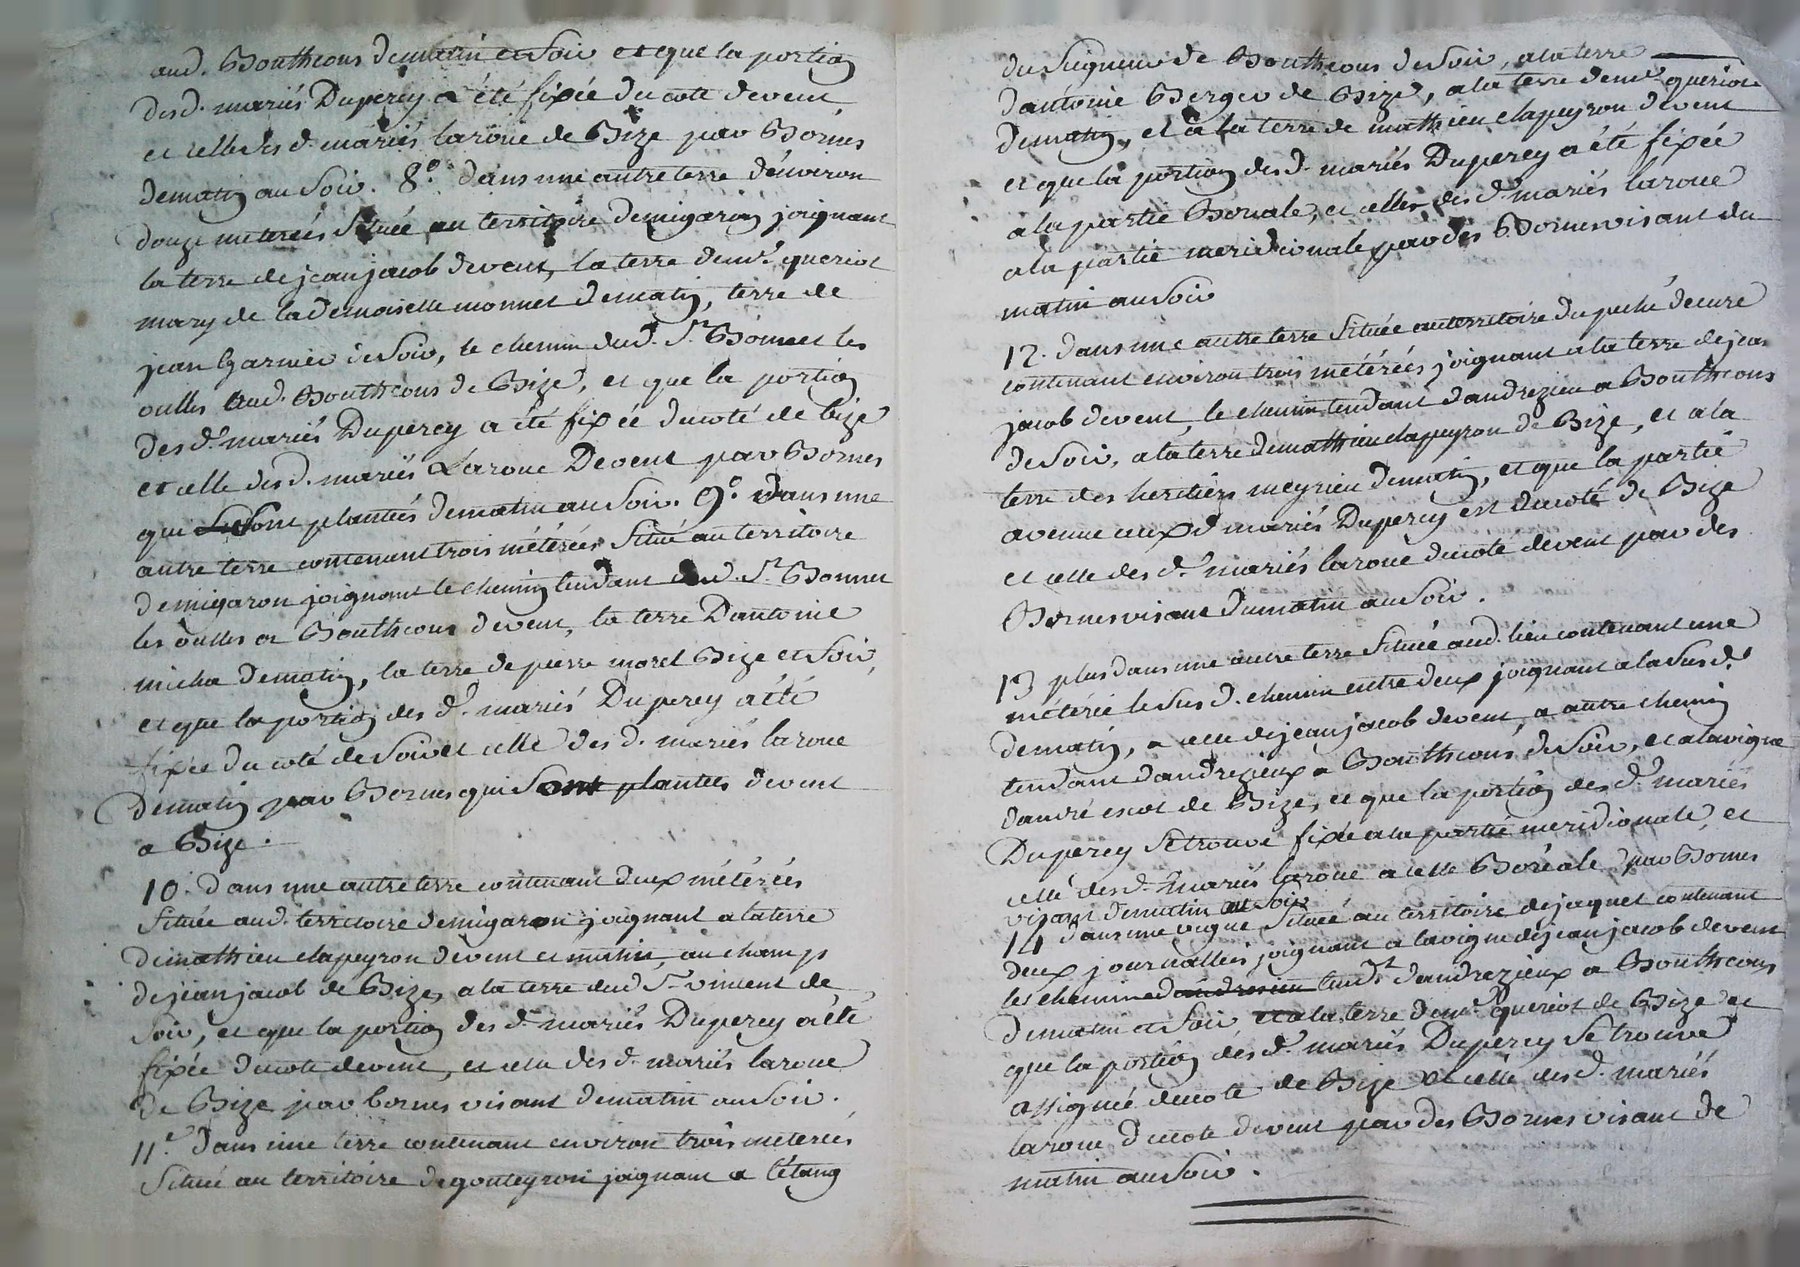 aud. Bouthcons de matin et Soir et que la portion
desd. mariés Duperey a été fixée du coté devent
et celle des d. mariés laroüe de Bize par Bornes
de matin au Soir. 8.° dans une autre terre d'environ
douze meterées Située au territoire de migaron joignant
la terre de jean jacob devent, la terre de mr. queriot
mary de la Demoiselle monnet de matin, terre de
jean Garnier de Soir, le chemin dud. St. Bonnet les
oulles aud. Bouthcons de Bize, et que la portion
des d. mariés Duperey a été fixée du coté de bize
et celle des d. mariés Laroue Devent par Bornes
qui Sont plantées de matin au Soir. 9.° dans une
autre terre contenant trois métérées Situé au territoire
de migaron joignant le chemin tendant dud. St. Bonnet
les oulles a Bouthcons devent, la terre D'antoine
micha de matin, la terre de pierre morel Bize et Soir,
et que la portion des d. mariés Duperey a été
fixée du coté de Soir et celle des d. mariés laroue
de matin par Bornes qui Sont plantées devent
a Bize.
10.° dans une autre terre contenant deux métérées
Située aud. territoire de migaron joignant a la terre
de mathieu clapeyron devent et matin, au champ
de jean jacob de Bize, a la terre dud St. vincent de
Soir, et que la portion des d. mariés Duperey a été
fixée du coté devent, et celle des d. mariés laroue
de Bize par bornes visant de matin au Soir.
11.e Dans une terre contenant environ trois meterées
Situé au territoire de gouteyron joignant a l'étang
du Seigneur de Bouthcons de Soir, a la terre
d'antoine Berger de Bize, a la terre de mr. queriot
de matin, et a la terre de mathieu clapeyron devent
et que la portion des d. mariés Duperey a été fixée
a la partie Boriale, et celle des d. mariés laroue
a la partie meridionale par des Bornes visant du
matin au Soir
12. dans une autre terre Située au territoire du peché de cure
contenant environ trois métérées joignant a la terre de jean
jacob devent, le chemin tendant d'andrezieu a Bouthcons
de Soir, a la terre de mathieu clapeyron de Bize, et a la
terre des heritiers meyrieu de matin, et que la partie
avenue auxd. mariés Duperey est du coté de Bize
et celle des d. mariés laroue du coté devent par des
Bornes visant du matin au Soir.
13 plus dans une autre terre Située aud. lieu contenant une
métérée le Sus d. chemin entre deux joignant a la Sus d.
de matin, a celle de jean jacob devent, a autre chemin
tendant d'andrezieux a Bouthcons de Soir, et a la vigne
d'andré escot de Bize, et que la portion des d. mariés
Duperey Se trouve fixée a la partie meridionale, et
celle des d. mariés laroue a celle Boréale par Bornes
visant de matin au Soir
14 dans une vigne Située au territoire de jaquet contenant
deux journallées joignant a la vigne de jean jacob devent
les chemins tendt. d'andrezieux a Bouthcons
de matin et Soir a la terre de mr. queriot de Bize et
que la portion des d. mariés Duperey Se trouve
assignée du coté de Bize et celle des d. mariés
laroue du coté devent par des Bornes visant de
matin au Soir.